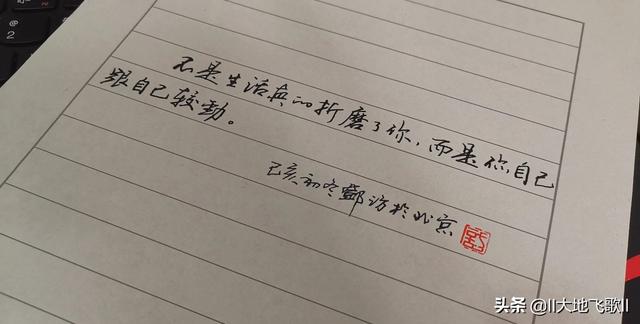 不是生活真的折磨了你，而是你自己
跟自己较劲。
己亥初冬邹访於北京
头条 @II大地飞歌II